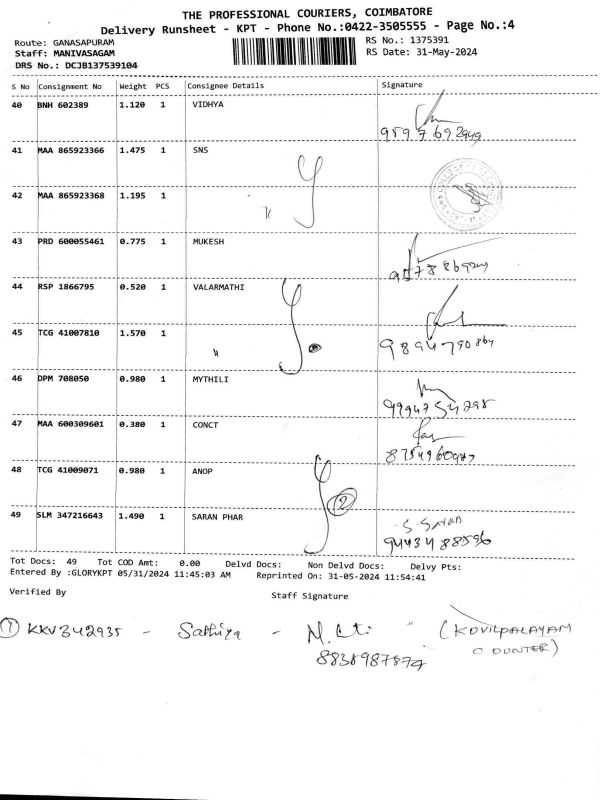 THE PROFESSIONAL COURIERS, COIMBATORE
Delivery Runsheet - KPT - Phone No.:0422-3505555 - Page No.:4
Route: GANASAPURAM RS No.: 1375391
Staff: MANIVASAGAM RS Date: 31-May-2024
DRS No.: DCJB137539104
S No Consignment No Weight PCS Consignee Details Signature
40 BNH 602389 1.120 1 VIDHYA
9597692949
41 MAA 865923366 1.475 1 SNS
42 MAA 865923368 1.195 1 "
43 PRD 600055461 0.775 1 MUKESH
44 RSP 1866795 0.520 1 VALARMATHI
45 TCG 41007810 1.570 1 "
9894790864
46 DPM 708050 0.980 1 MYTHILI
47 MAA 600309601 0.380 1 CONCT
48 TCG 41009071 0.980 1 ANOP
2
49 SLM 347216643 1.490 1 SARAN PHAR
S Saran
9443488596
Tot Docs: 49 Tot COD Amt: 0.00 Delvd Docs: Non Delvd Docs: Delvy Pts:
Entered By :GLORYKPT 05/31/2024 11:45:03 AM Reprinted On: 31-05-2024 11:54:41
Verified By Staff Signature
1 KKV342935 - Sathiya - (KOVILPALAYAM
8838987874 COUNTER)